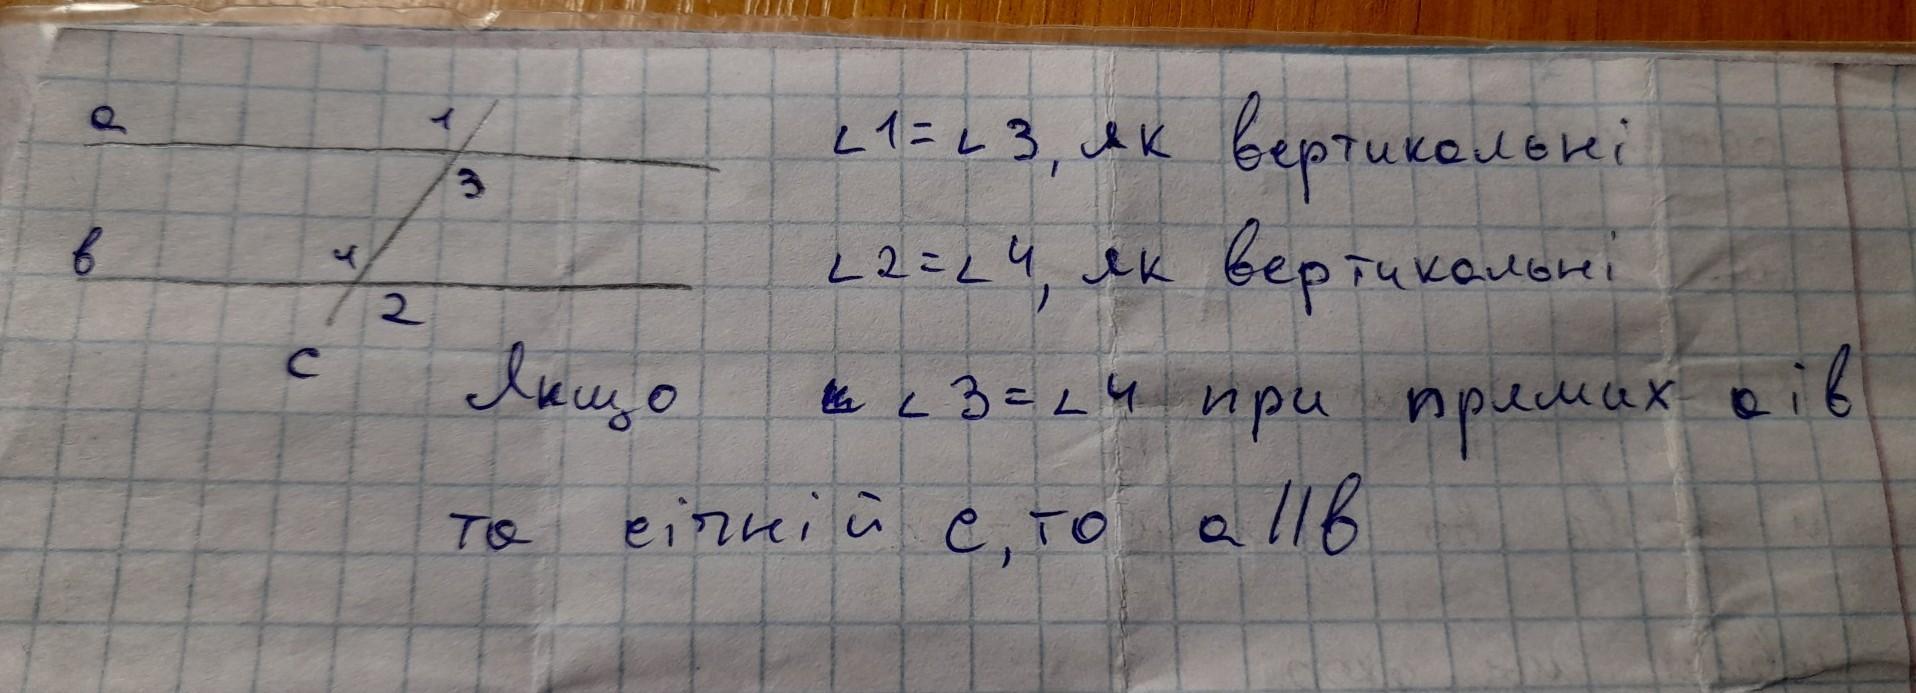 а 1
3
в 4
2
с
∠1=∠3, як вертикальні
∠2=∠4, як вертикальні
Якщо ∠3=∠4 при прямих а і в
та січній с, то а||в